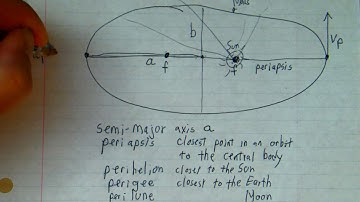 b
Sun
Vp
a
f
f
periapsis
semi-major axis a
periapsis closest point in an orbit
to the central body
perihelion closest to the Sun
perigee closest to the Earth
perilune Moon